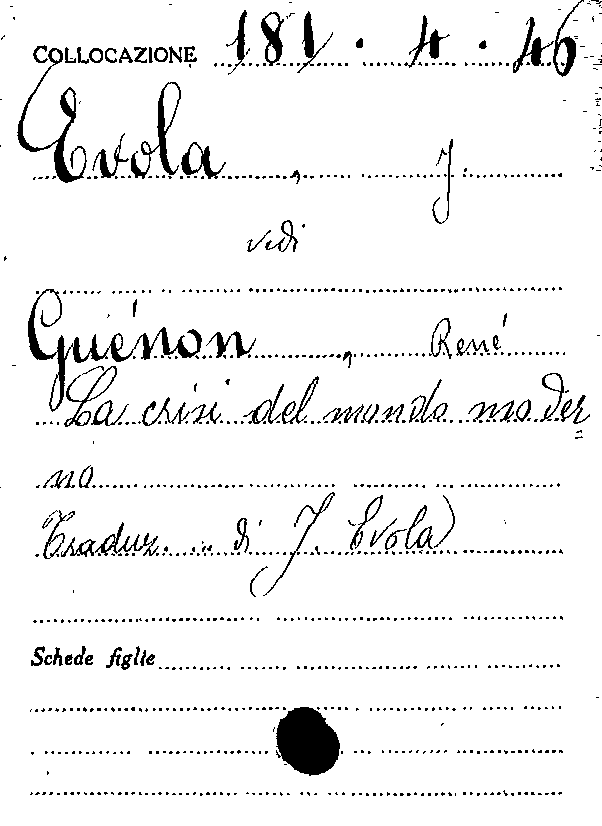 COLLOCAZIONE 181.4.46
Evola, J.
vedi
Guénon, René
La crisi del mondo moder=
no
Traduz. ... di J. Evola
Schede figlie